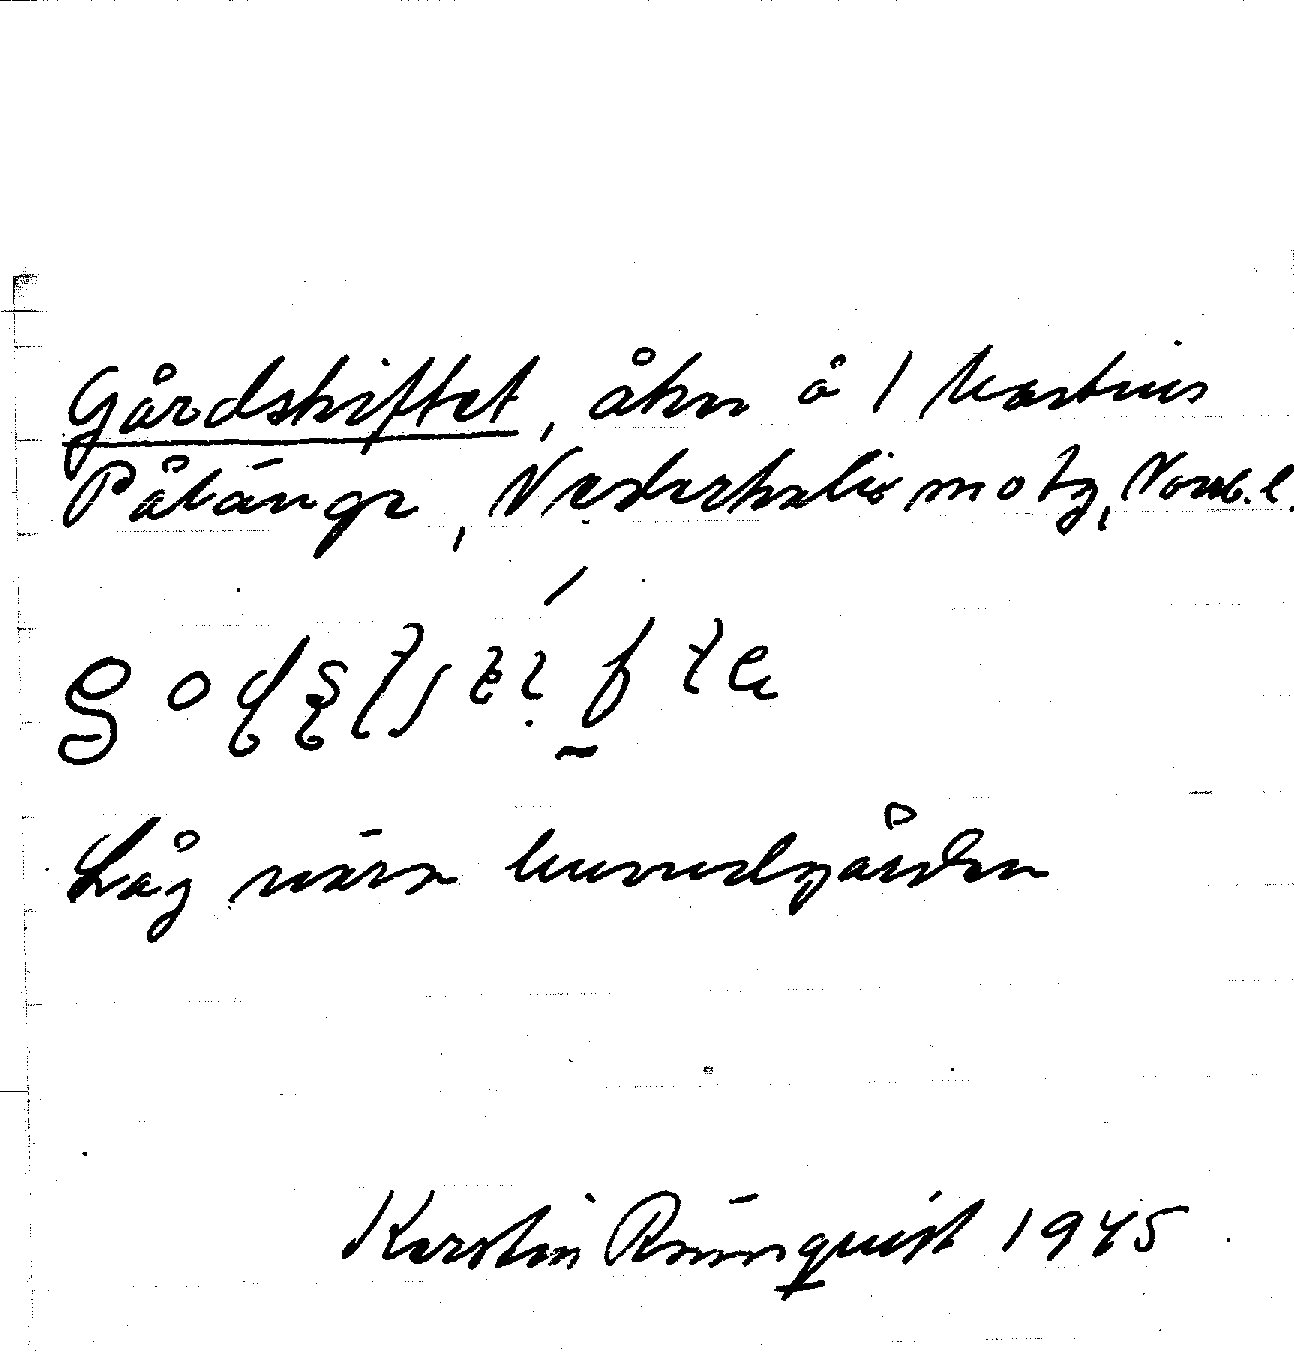 Gårdskiftet, åkrar å 1 Mastims
Pålänge, Nederkalix motg, Norrb. l.
Låg nära huvudgården
Kerstin Rönnquist 1945